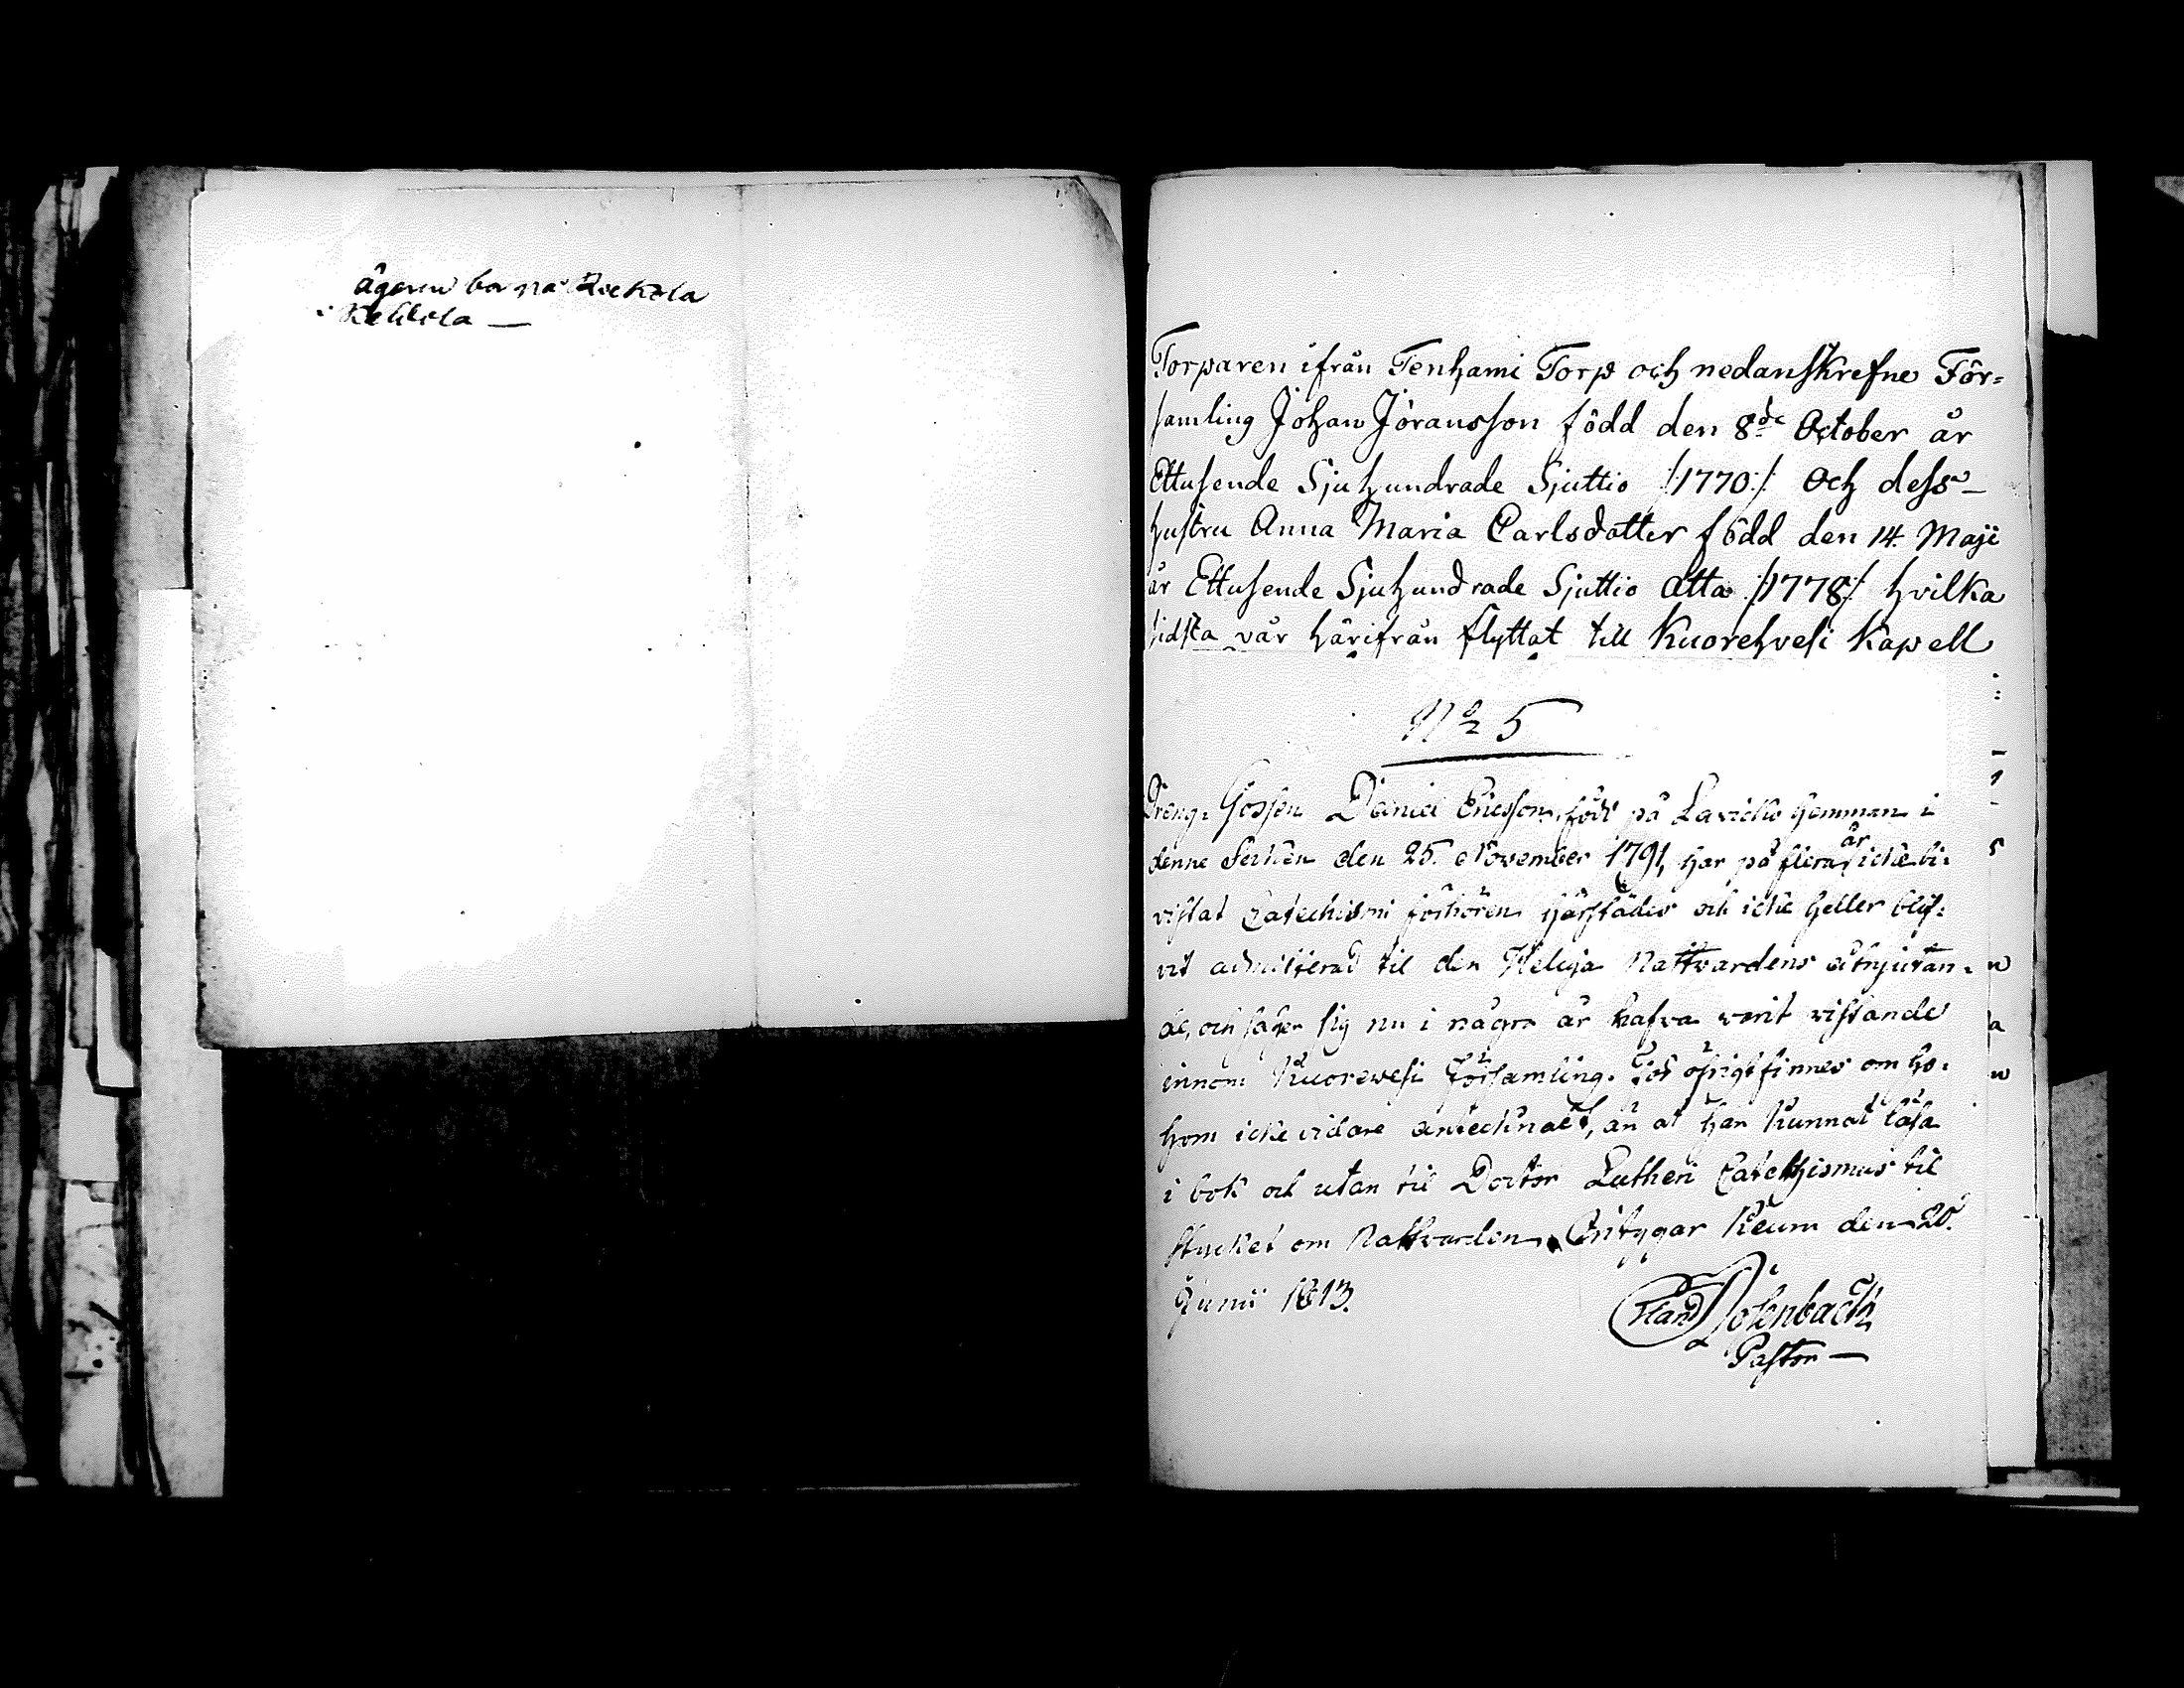 ägaren bor på
i
Torparen ifrån Tenhami Torp och nedanskrefne För=
samling Johan Jöransson född den 8de October år
Ettusende Sjuhundrade Sjuttio /:1770:/ Och dess
hustru Anna Maria Carlsdotter född den 14. Maji
år Ettusende Sjuhundrade Sjuttio Otta /:1778:/ hvilka
sidsta vår härifrån flyttat till Kuorehvesi Kapell
No 5
Dreng-Gossen Daniel Ericsson, född på hemman i
denne Socken den 25. November 1791, har på flera år icke bi=
vistat Catechismi förhören härstädes och icke heller blif=
vit admitterad til den Heliga Nattvardens åtnjutan=
de, och säger sig nu i några år hafva varit vistande
innom Kuorewesi Församling. För öfrigt finnes om ho=
nom icke vidare antecknat, än at han kunnat läsa
i bok och utan til Doctor Lutheri Catechismus til
stycket om Nattvarden, Betygar Keuru den 20.
Junii 1813.
Rosenback
Pastor